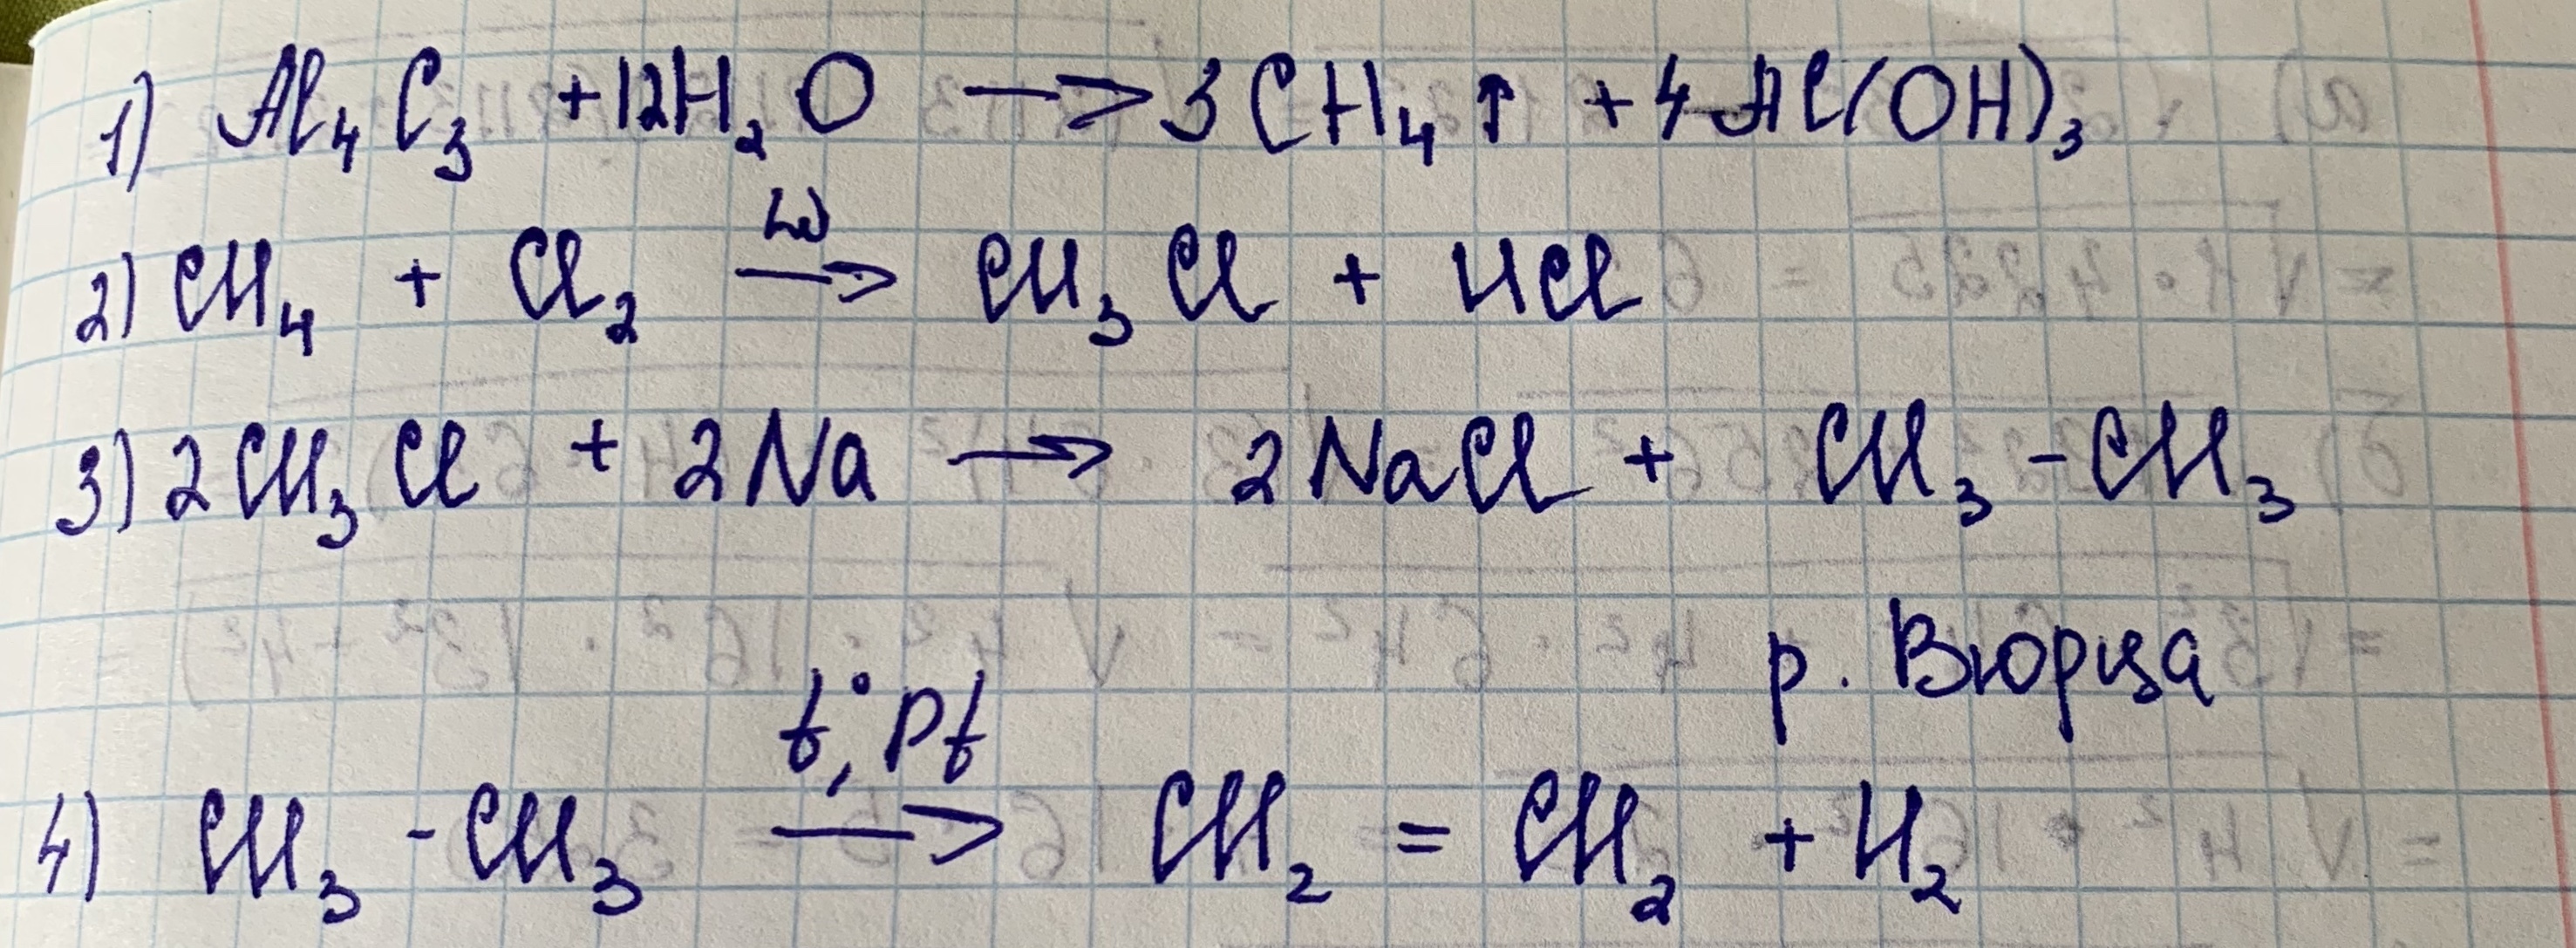 1) Al₄C₃ + 12H₂O → 3CH₄↑ + 4Al(OH)₃
hν
2) CH₄ + Cl₂ → CH₃Cl + HCl
3) 2CH₃Cl + 2Na → 2NaCl + CH₃-CH₃
р. Вюрца
t°, Pt
4) CH₃-CH₃ → CH₂=CH₂ + H₂